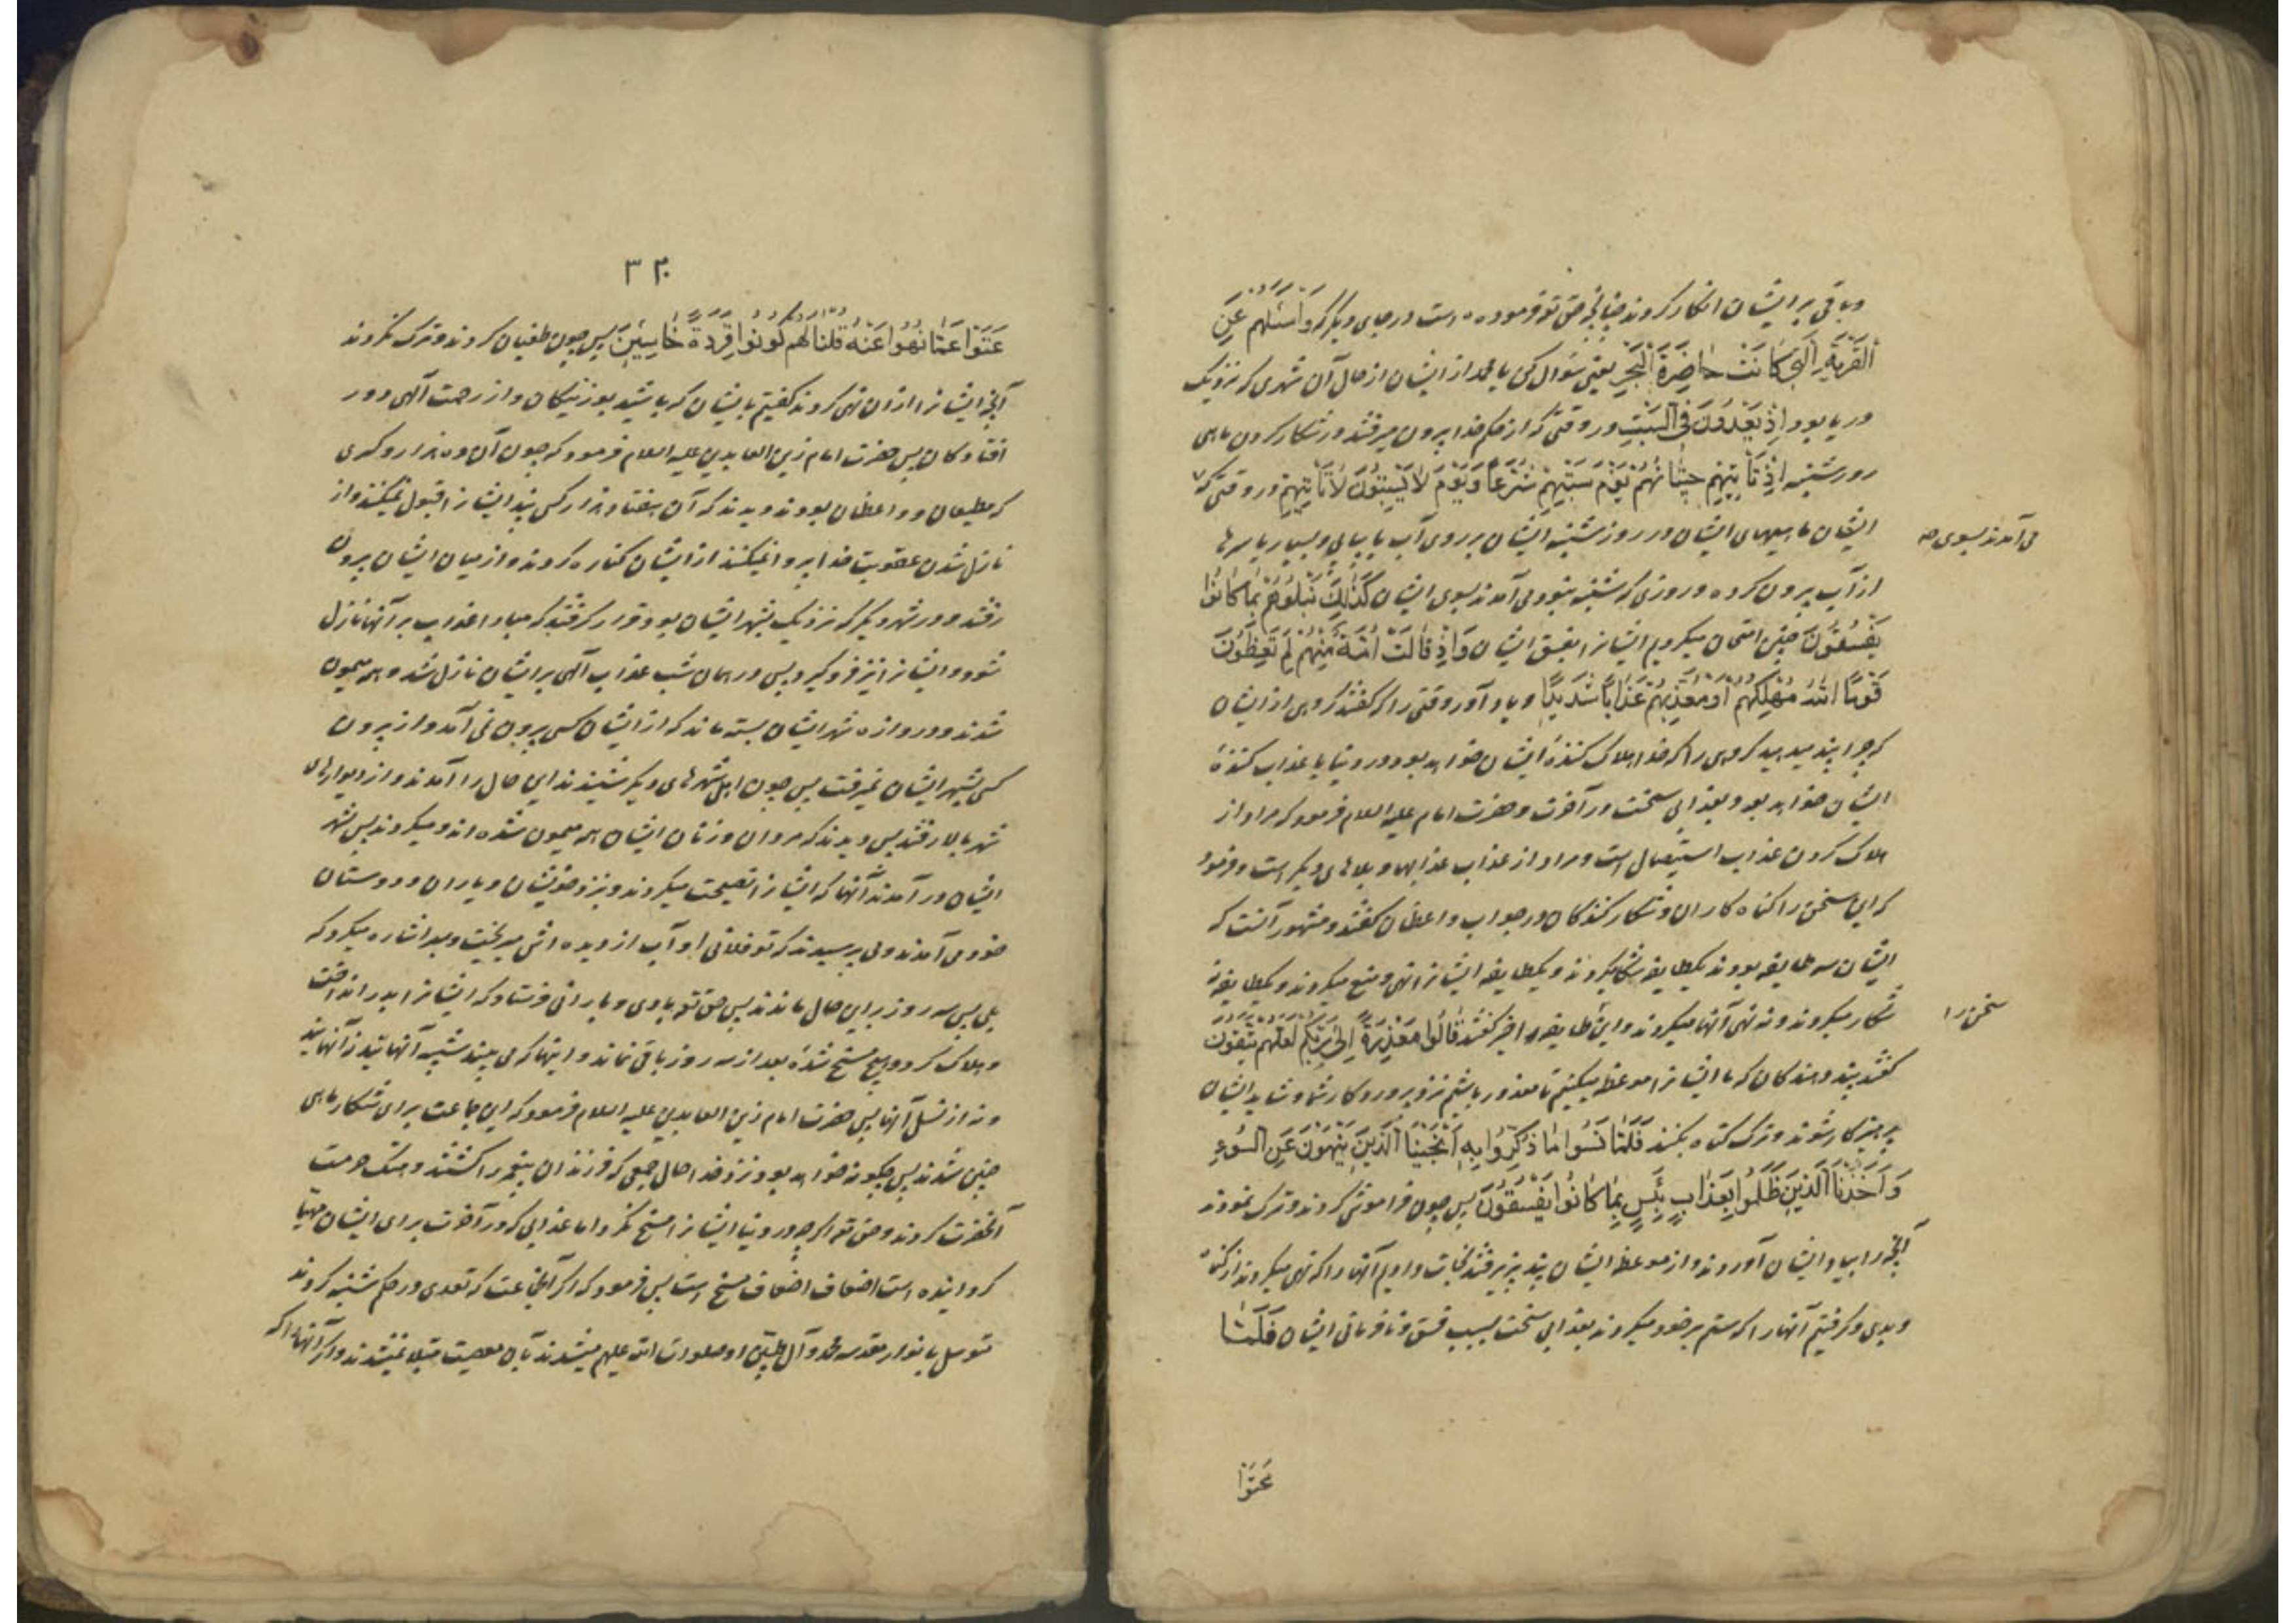 وباقی بر ایشان انکار کردند چنانچه حق تعو فرموده است در جای دیگر که وَاسْئَلْهُم عَنِ
القَرْیَةِ الَّتی کانَتْ حاضِرَةَ الْبَحْرِ یعنی سؤال کن یا محمد از ایشان از حال آن شهری که نزدیک
دریا بود اِذْ یَعْدُونَ فِی السَّبْتِ در وقتی که از حکم خدا بیرون میرفتند در شکار کردن ماهی
روز شنبه اِذْ تَأْتیهِمْ حیتانُهُمْ یَوْمَ سَبْتِهِمْ شُرَّعًا وَیَوْمَ لا یَسْبِتُونَ لا تَأْتیهِمْ در وقتی که
می آمدند بسوی صه
ایشان ماهیهای ایشان در روز شنبه ایشان بر روی آب پیاپی و بسیار یا سرها
از آب بیرون کرده و روزی که شنبه نبود می آمدند بسوی ایشان کَذٰلِکَ نَبْلُوهُمْ بِما کانُوا
یَفْسُقُونَ چنین امتحان میکردیم ایشانرا بفسق ایشان وَاِذْ قالَتْ اُمَّةٌ مِنْهُمْ لِمَ تَعِظُونَ
قَوْمًا اللهُ مُهْلِکُهُمْ اَوْ مُعَذِّبُهُمْ عَذابًا شَدیدًا و یاد آور وقتی را که گفتند گروهی از ایشان
که چرا پند میدهید گروهی را که خدا هلاک کنندهٔ ایشان خواهد بود در دنیا یا عذاب کنندهٔ
ایشان خواهد بود بعذابی سخت در آخرت و حضرت امام علیه السلام فرمود که مراد از
هلاک کردن عذاب استیصال است و مراد از عذاب عذابها و بلاهای دیگر است و فرمود
که این سخن را گناه کاران و شکار کنندگان در جواب واعظان گفتند و مشهور آنست که
ایشان سه طایفه بودند یکطایفه شکار میکردند و یکطایفه ایشانرا نهی و منع میکردند و یکطایفه نه
سخن را
شکار میکردند و نه نهی آنها میکردند و این طایفه اخیر گفتند قالُوا مَعْذِرَةً اِلی رَبِّکُمْ لَعَلَّهُمْ یَتَّقُونَ
گفتند پند دهندگان که ما ایشانرا موعظه میکنیم تا معذور باشیم نزد پروردگار شما و شاید ایشان
پرهیز کار شوند و ترک گناه بکنند فَلَمَّا نَسُوا ما ذُکِّرُوا بِهِ اَنْجَیْنَا الَّذینَ یَنْهَوْنَ عَنِ السُّوءِ
وَاَخَذْنَا الَّذینَ ظَلَمُوا بِعَذابٍ بَئیسٍ بِما کانُوا یَفْسُقُونَ پس چون فراموش کردند و ترک نمودند
آنچه را بیاد ایشان آوردند و از موعظه ایشان پند نپذیرفتند نجات دادیم آنها را که نهی میکردند از گناه
و بدی و گرفتیم آنها را که ستم بر خود میکردند بعذابی سخت بسبب فسق و نافرمانی ایشان فَلَمَّا
عَتَوْا
۳۲۰
عَتَوْا عَمَّا نُهُوا عَنْهُ قُلْنا لَهُمْ کُونُوا قِرَدَةً خاسِئینَ پس چون طغیان کردند و ترک نکردند
آنچه ایشانرا از ان نهی کردند گفتیم بایشان که باشید بوزنیگان و از رحمت الهی دور
افتادگان پس حضرت امام زین العابدین علیه السلام فرمود که چون آن ده هزار و کسری
که مطیعان و واعظان بودند دیدند که آن هفتاد هزار کس پند ایشانرا قبول نمیکنند و از
نازل شدن عقوبت خدا پروا نمیکنند از ایشان کناره کردند و از میان ایشان بیرون
رفتند و در شهر دیگر که نزدیک بشهر ایشان بود قرار گرفتند که مبادا عذاب بر آنها نازل
شود و ایشانرا نیز فرو گیرد پس در همان شب عذاب الهی بر ایشان نازل شد و همه میمون
شدند و دروازه شهر ایشان بسته ماند که از ایشان کسی بیرون نمی آمد و از بیرون
کسی بشهر ایشان نمیرفت پس چون اهل شهرهای دیگر شنیدند این حال را آمدند و از دیوارهای
شهر بالا رفتند پس دیدند که مردان و زنان ایشان همه میمون شده اند و میگردند پس بشهر
ایشان در آمدند آنها که ایشانرا نصیحت میکردند و نزد خویشان و یاران و دوستان
خود می آمدند و می پرسیدند که تو فلانی او آب از دیده اش میریخت و بسر اشاره میکرد که
بلی پس سه روز بر این حال ماندند پس حق تعو بادی و بارانی فرستاد که ایشانرا بدریا انداخت
و هلاک کرد و هیچ مسخ شده بعد از سه روز باقی نماند و اینها که می بینید شبیه آنهایند نه آنهایند
و نه از نسل آنها پس حضرت امام زین العابدین علیه السلام فرمود که این جماعت برای شکار ماهی
چنین شدند پس چگونه خواهد بود نزد خدا حال جمعی که فرزندان پیغمبر را کشتند و هتک حرمت
آنحضرت کردند و حق تعو اگر چه در دنیا ایشانرا مسخ نکرد اما عذابی که در آخرت برای ایشان مهیا
گردانیده است اضعاف اضعاف مسخ است پس فرمود که اگر آنجماعت که تعدی در حکم شنبه کردند
متوسل بانوار مقدسه محمد و آل طیبین او صلوات الله علیهم میشدند بآن معصیت مبتلا نمیشدند و اگر آنها را که